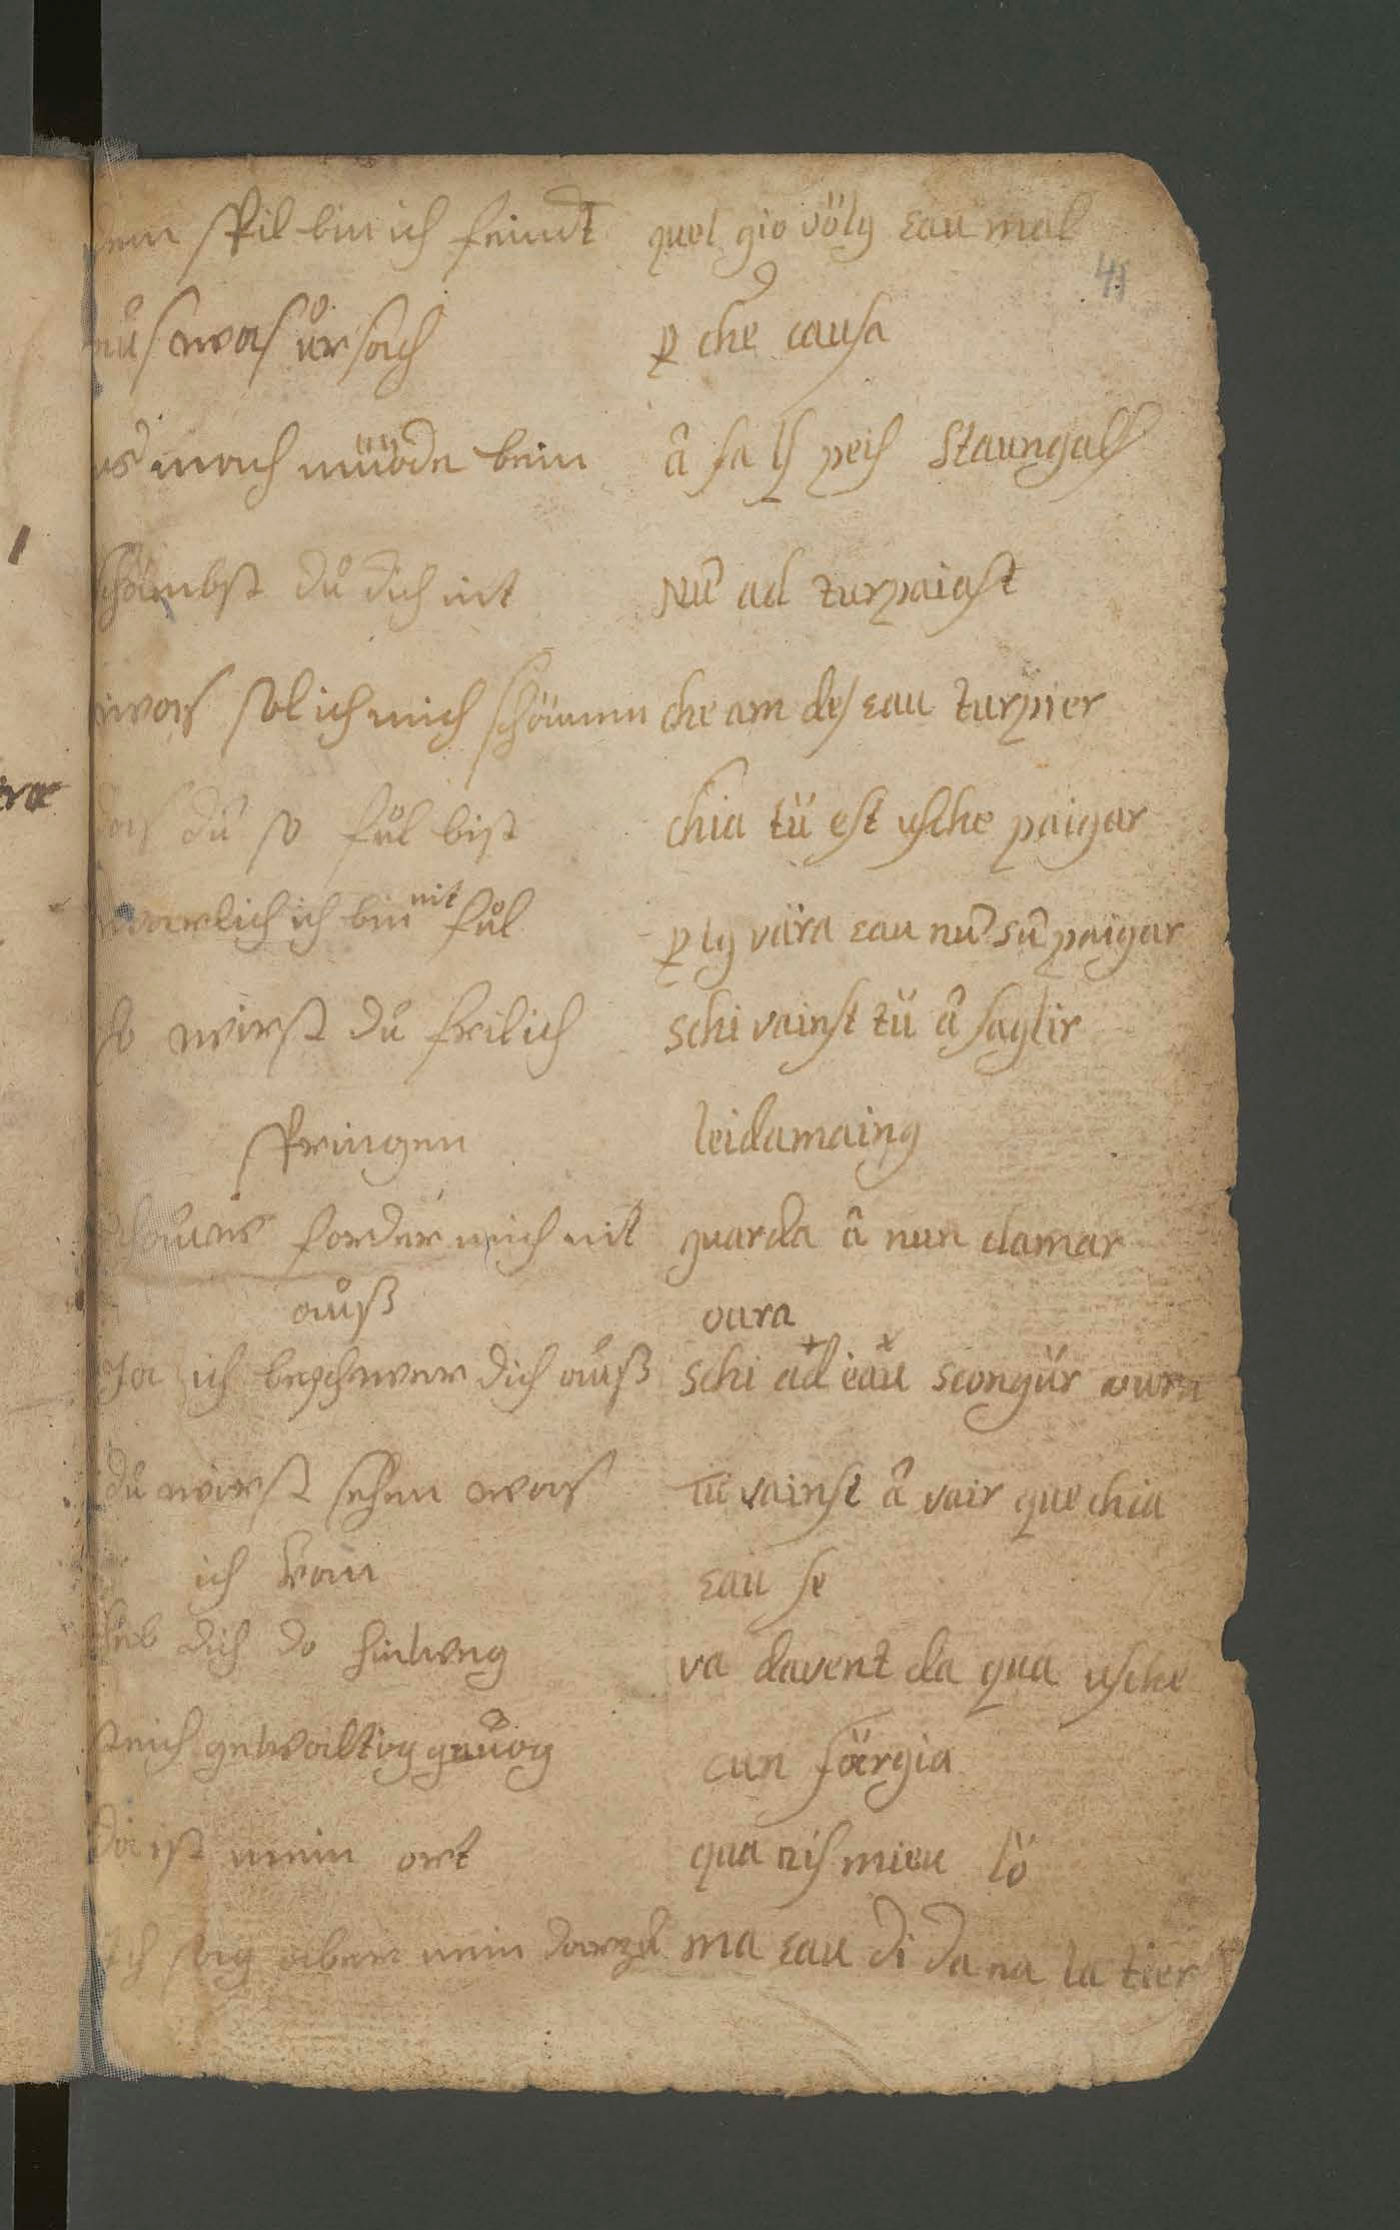 dem spil bin ich feindt quel gio völg eau mal
45
aůs was ůrsach ꝑ che causa
es mach müode bein â fa ls peis staungals
schämbst dů dich nit Nū ad turpaiast
was sol ich mich schämmen che am des eau turpier
das dů so fůl bist chia tü est usche paigar
warlich ich bin nit fůl ꝑ lg vära eau nū sū paigar
so wirst dů frilich schi vainst tü â saglir
springen leidamaing
schouwe forder mich nit guarda â nun clamar
auß oura
Ja ich beschwere dich auß schi ad eau scongür oura
dů wirst sehen was Tü vainst â vair que chia
ich kan eau se
heb dich do hinweg va davent da qua usche
gewaltig gnůog cun förgia
da ist mein ort qua ais mieu lö
ich sag aber nein darzů ma eau di da na la tier